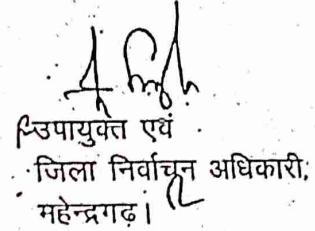 उपायुक्त एवं
जिला निर्वाचन अधिकारी,
महेन्द्रगढ़।